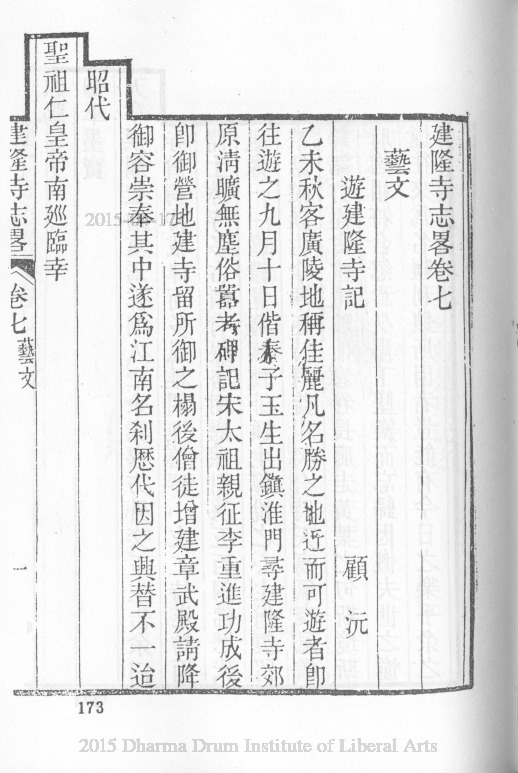 建隆寺志畧卷七
藝文
遊建隆寺記 顧沅
乙未秋客廣陵地稱佳麗凡名勝之地近而可遊者卽
往遊之九月十日偕秦子玉生出鎭淮門尋建隆寺郊
原淸曠無塵俗囂考碑記宋太祖親征李重進功成後
卽御營地建寺留所御之榻後僧徒增建章武殿請降
御容崇奉其中遂爲江南名刹歷代因之興替不一迨
昭代
聖祖仁皇帝南巡臨幸
建隆寺志畧 卷七 藝文 一
173
2015 Dharma Drum Institute of Liberal Arts